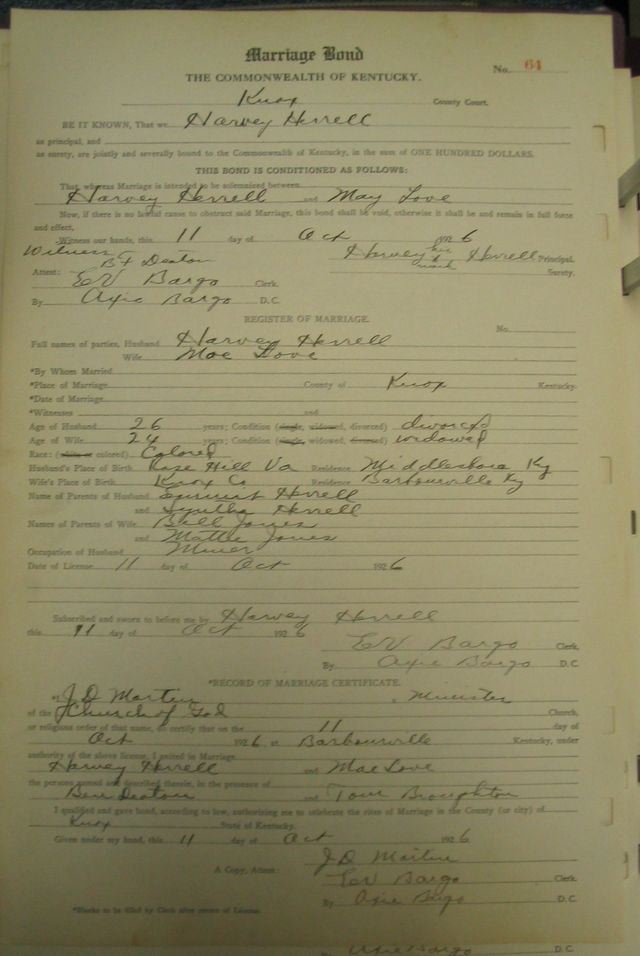 Marriage Bond
No. 61
THE COMMONWEALTH OF KENTUCKY.
Knox County Court.
BE IT KNOWN, That we Harvey Herrell
as principal, and
as surety, are jointly and severally bound to the Commonwealth of Kentucky, in the sum of ONE HUNDRED DOLLARS.
THIS BOND IS CONDITIONED AS FOLLOWS:
That, whereas Marriage is intended to be solemnized between
Harvey Herrell and May Love
Now, if there is no lawful cause to obstruct said Marriage, this bond shall be void, otherwise it shall be and remain in full force
and effect.
Witness our hands, this 11 day of Oct 1926
Witness Harvey his x mark Herrell Principal.
B F Deaton Surety.
Attest: EV Bargo Clerk.
By Axie Bargo D.C.
REGISTER OF MARRIAGE.
No.
Full names of parties, Husband Harvey Herrell
Wife Mae Love
*By Whom Married
*Place of Marriage County of Knox Kentucky.
*Date of Marriage
*Witnesses and
Age of Husband 26 years; Condition (single, widowed, divorced) divorced
Age of Wife 24 years; Condition (single, widowed, divorced) widowed
Race: (white or colored) Colored
Husband's Place of Birth Rose Hill Va Residence Middlesboro Ky
Wife's Place of Birth Knox Co Residence Barbourville Ky
Name of Parents of Husband Herrell
and Herrell
Names of Parents of Wife Bill Jones
and Mattie Jones
Occupation of Husband Miner
Date of License 11 day of Oct 1926
Subscribed and sworn to before me by Harvey Herrell
this 11 day of Oct 1926
EV Bargo Clerk,
By Axie Bargo D.C
*RECORD OF MARRIAGE CERTIFICATE.
*I J.D. Martin, Minister
of the Church of God Church,
or religious order of that name, do certify that on the 11 day of
Oct 1926 at Barbourville Kentucky, under
authority of the above license, I united in Marriage
Harvey Herrell and Mae Love
the persons named and described therein, in the presence of
Ben Deaton and Tom Broughton
I qualified and gave bond, according to law, authorizing me to celebrate the rites of Marriage in the County (or city) of
Knox State of Kentucky.
Given under my hand, this 11 day of Oct 1926
J D Martin
A Copy, Attest: EV Bargo Clerk.
By Axie Bargo D.C
*Blanks to be filled by Clerk after return of License.
Axie Bargo D.C